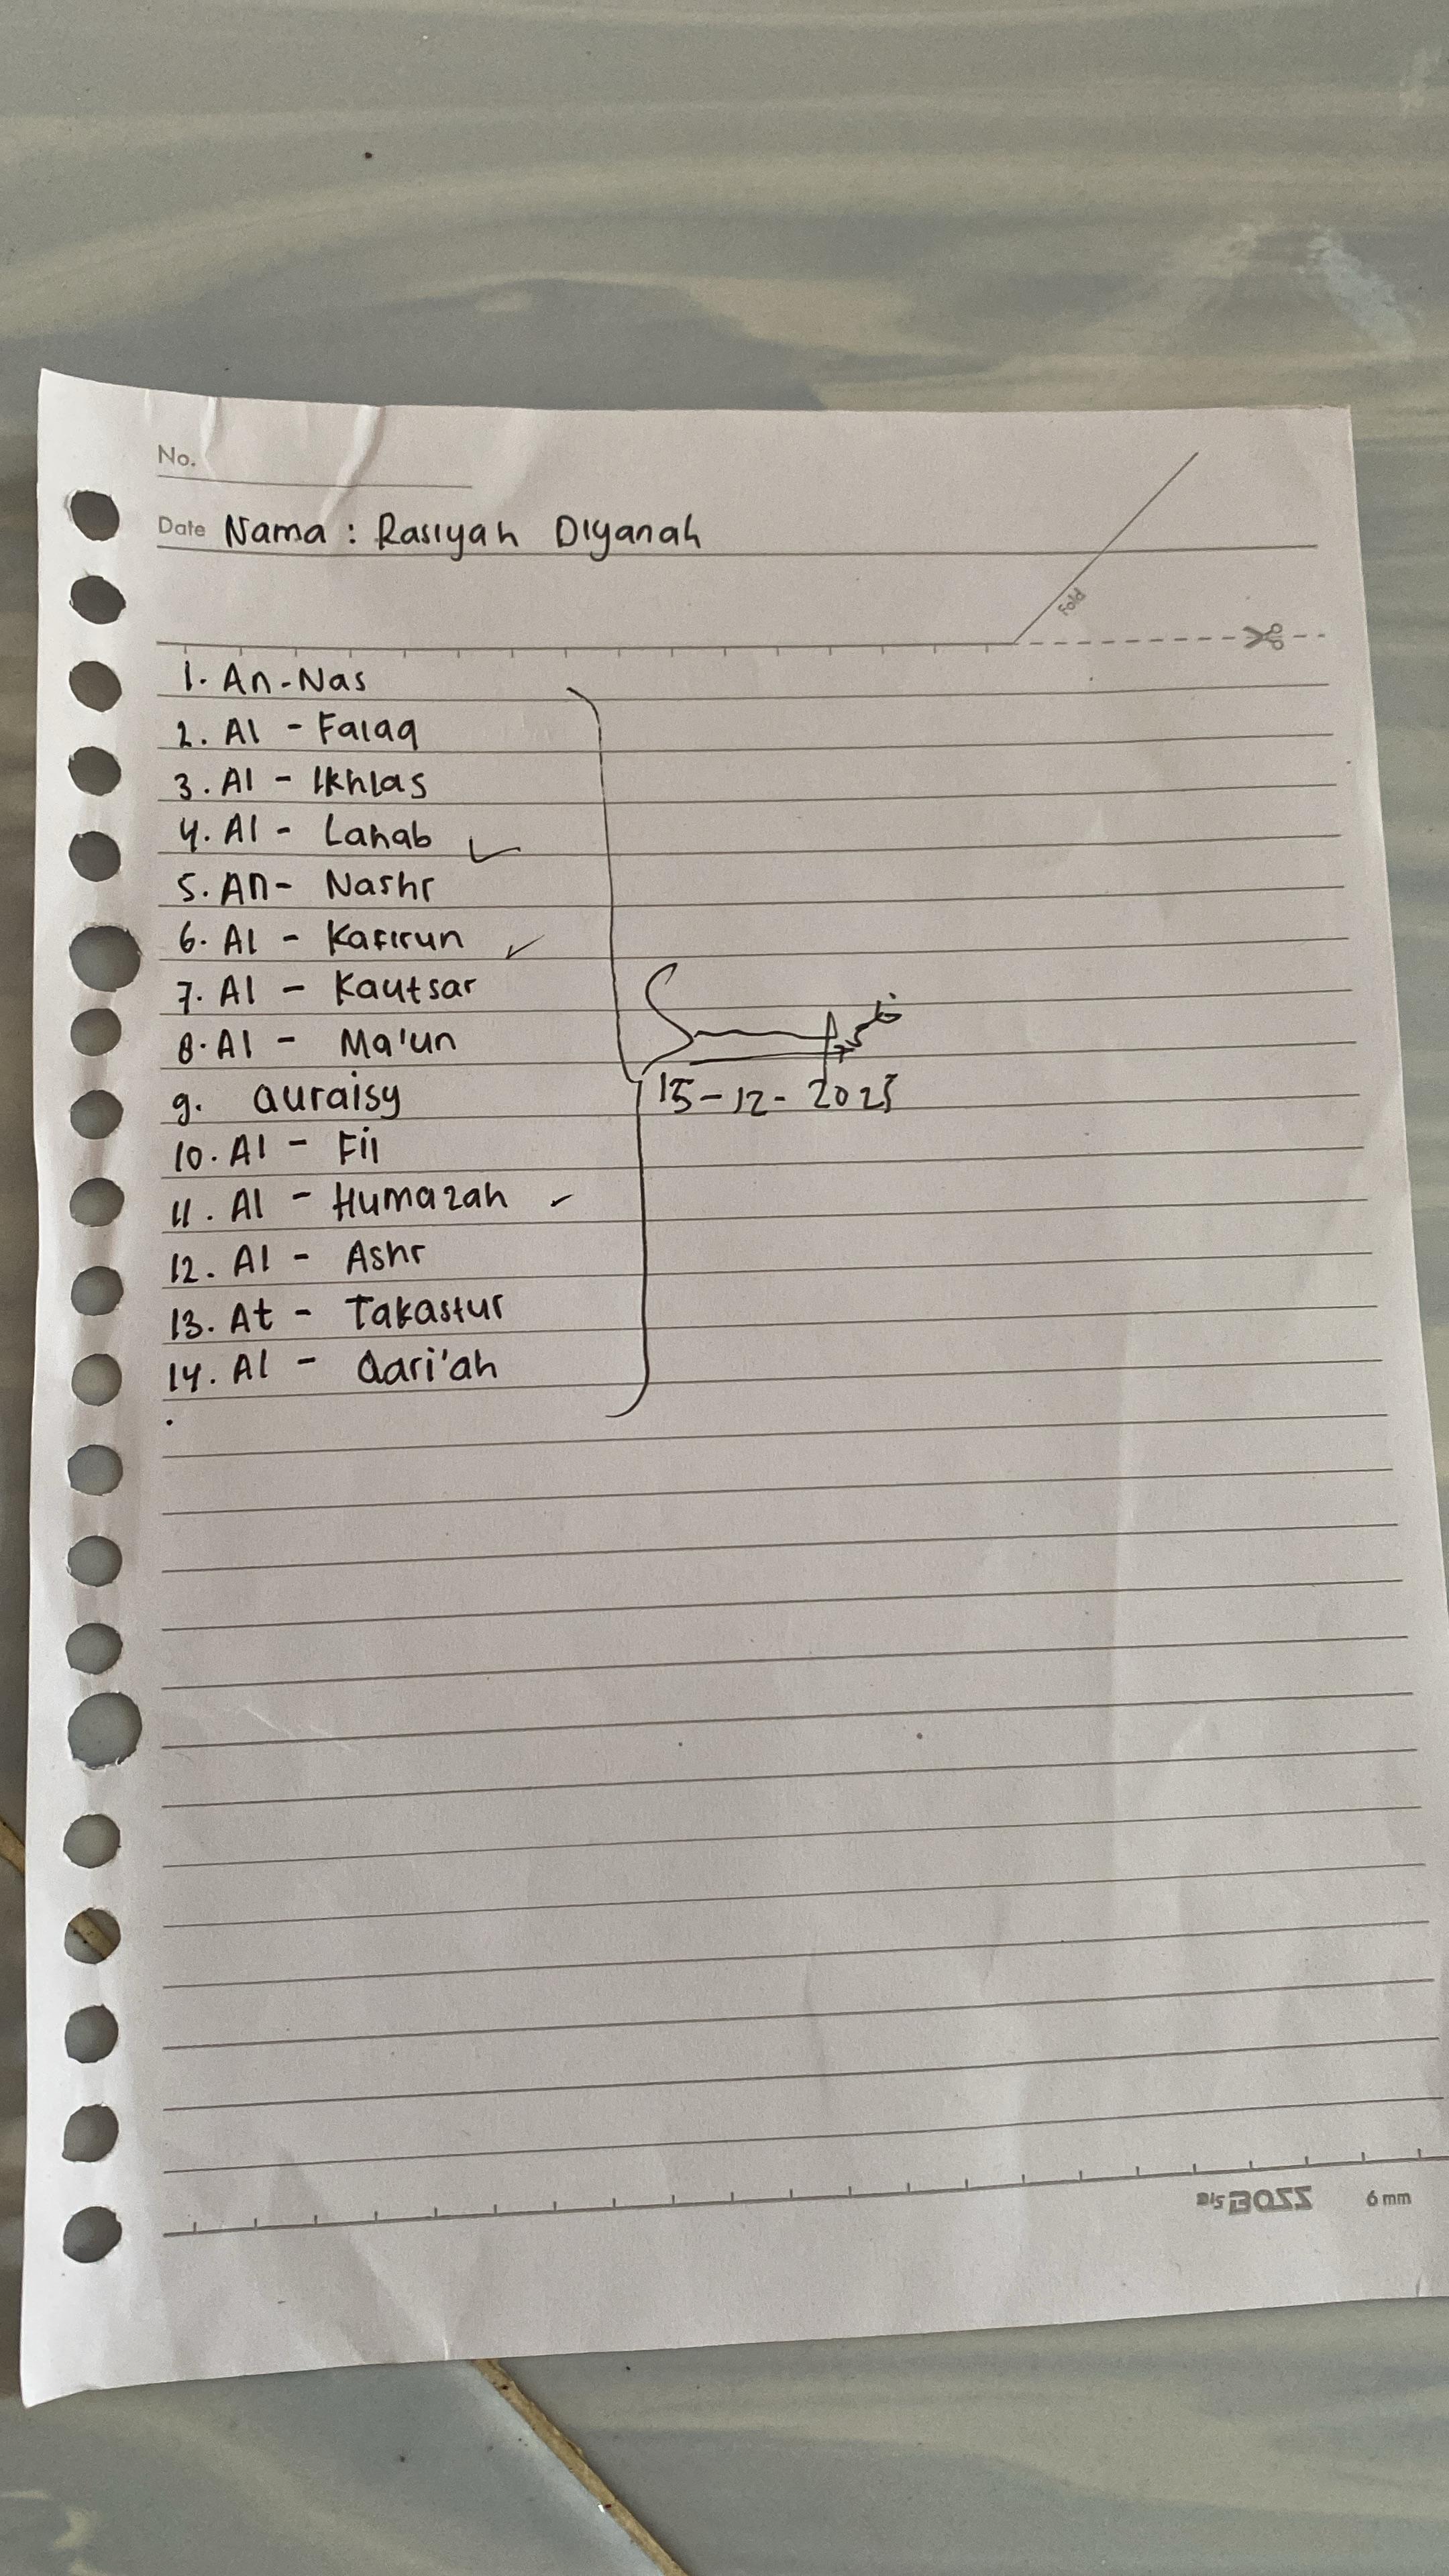 No.
Date Nama : Rasiyah Diyanah
Fold
1. An-Nas
2. Al - Falaq
3. Al - Ikhlas
4. Al - Lahab
5. An- Nashr
6. Al - Kafirun
7. Al - Kautsar
8. Al - Ma'un
9. Quraisy
15-12-2025
10. Al - Fil
11. Al - Humazah
12. Al - Ashr
13. At - Takastur
14. Al - Qari'ah
Big BOSS 6 mm